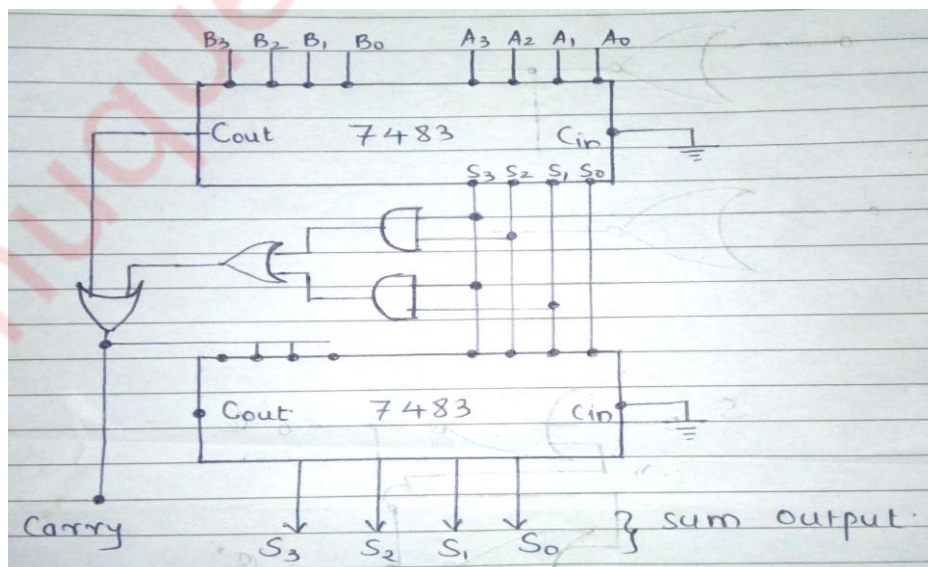 B3 B2 B1 B0 A3 A2 A1 A0
Cout 7483 Cin
S3 S2 S1 S0
Cout 7483 Cin
Carry S3 S2 S1 S0 } sum output.